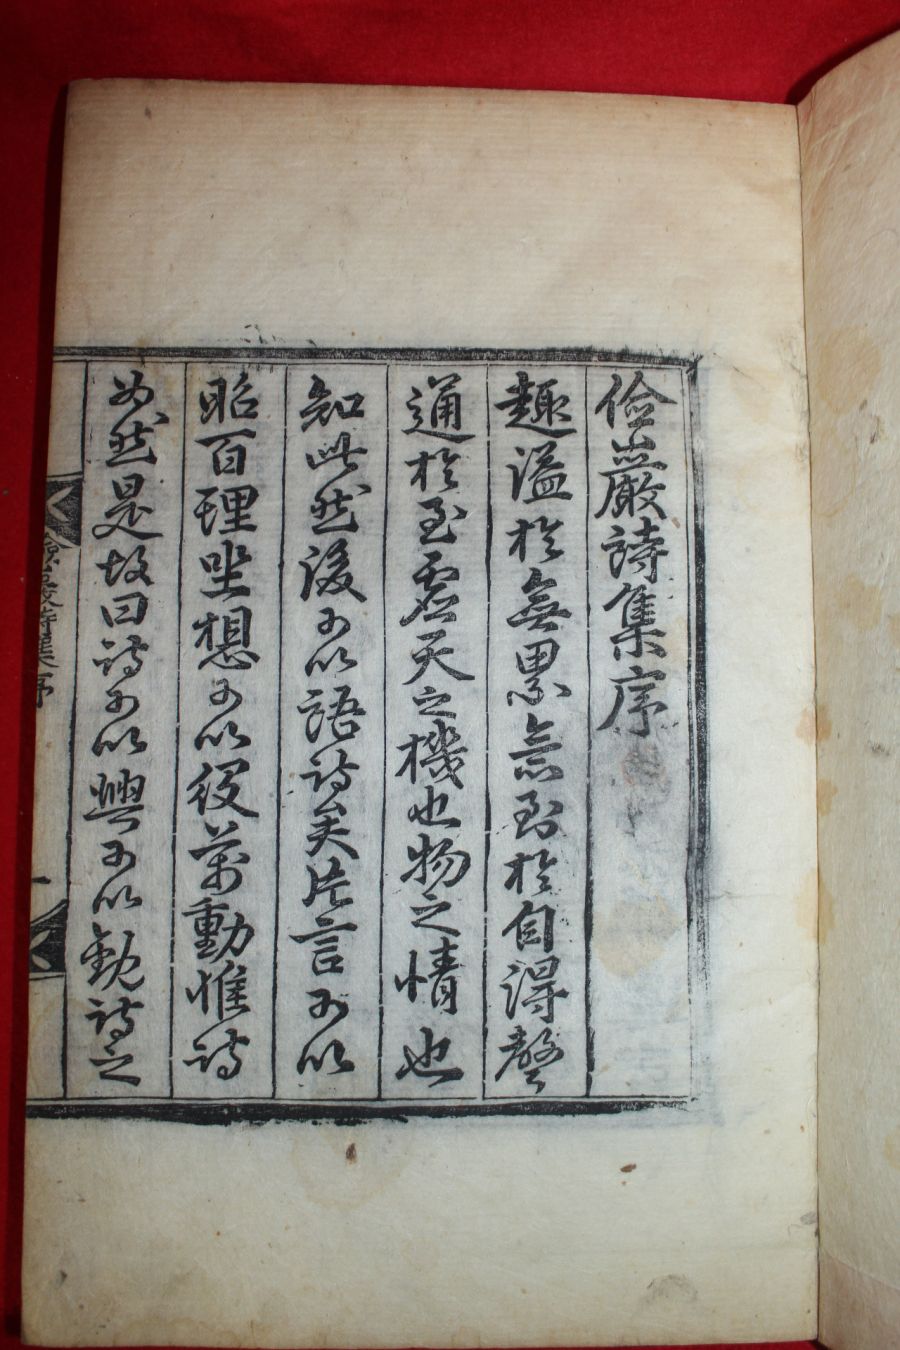 儉巖詩集序
趣溢於無累意到於自得聲
通於至虛天之機也物之情也
知此然後可以語詩矣片言可以
昭百理坐想可以役萬動惟詩
爲然是故曰詩可以興可以觀詩之
儉巖詩集序
一